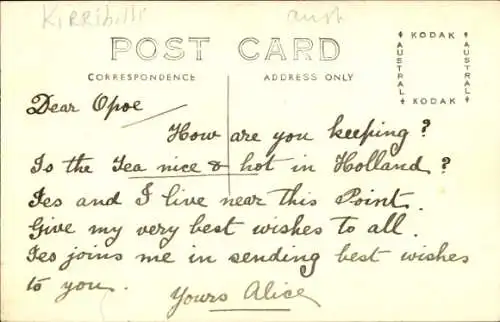 Kirribilli
POST CARD
CORRESPONDENCE
ADDRESS ONLY
KODAK
AUSTRAL
AUSTRAL
KODAK
Dear Opoe
How are you keeping?
Is the Tea nice & hot in Holland?
Jes and I live near this Point.
Give my very best wishes to all.
Jes joins me in sending best wishes
to you.
Yours Alice